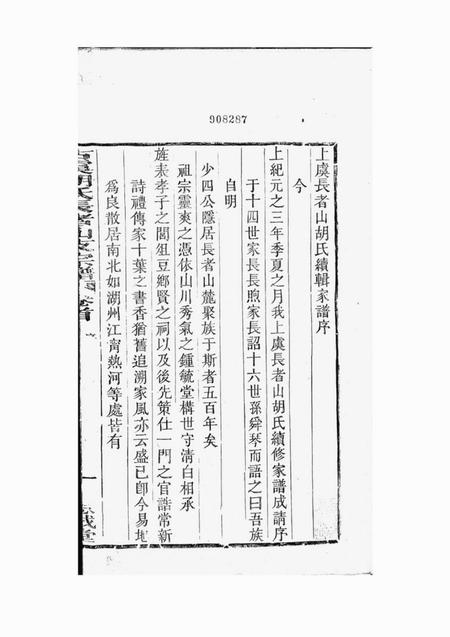 908287
上虞長者山胡氏續輯家譜序
今
上紀元之三年季夏之月我上虞長者山胡氏續修家譜成請序
于十四世家長長煦家長詔十六世孫舜琴而語之曰吾族
自明
少四公隱居長者山麓聚族于斯者五百年矣
祖宗靈爽之憑依山川秀氣之鍾毓堂構世守清白相承
旌表孝子之閭俎豆鄉賢之祠以及後先策仕一門之官誥常新
詩禮傳家十葉之書香猶舊追溯家風亦云盛已卽今易地
爲良散居南北如湖州江甯熱河等處皆有
卷首
一